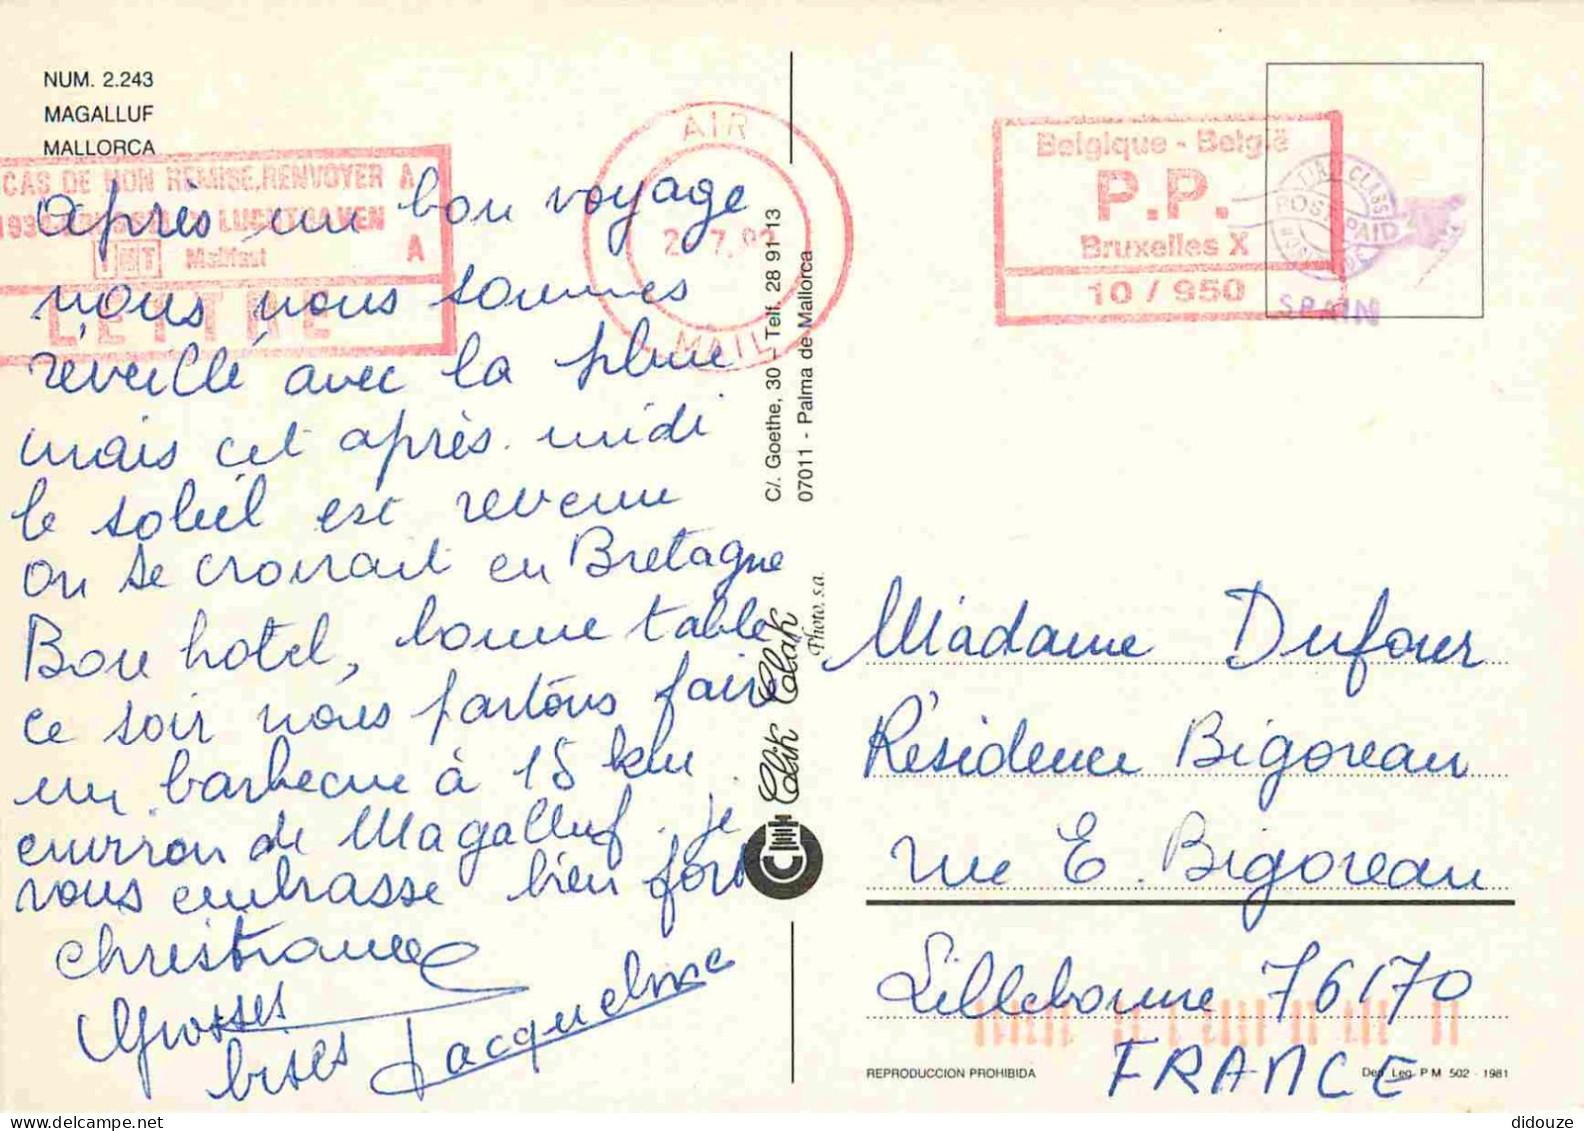 NUM. 2.243
MAGALLUF
MALLORCA
CAS DE NON REMISE, RENVOYER A
LUCHTHAVEN
Mailfast A
LETTRE
AIR
MAIL
Belgique - België
P.P.
Bruxelles X
10 / 950
POSTAPAID
SPAIN
Après un bon voyage
nous nous sommes
réveillé avec la pluie
mais cet après-midi
le soleil est revenu
on se croirait en Bretagne
Bon hotel, bonne table
ce soir nous partons faire
un barbecue à 15 km
environ de Magalluf. je
vous embrasse bien fort
Christiane
Grosses
bises Jacqueline
C/. Goethe, 30 - Telf. 28 91 13
07011 - Palma de Mallorca
Clik Clak
Photo, s.a.
Madame Dufour
Résidence Bigoreau
rue E. Bigoreau
Lillebonne 76170
FRANCE
REPRODUCCION PROHIBIDA
Dep. Leg. P M 502 - 1981
didouze